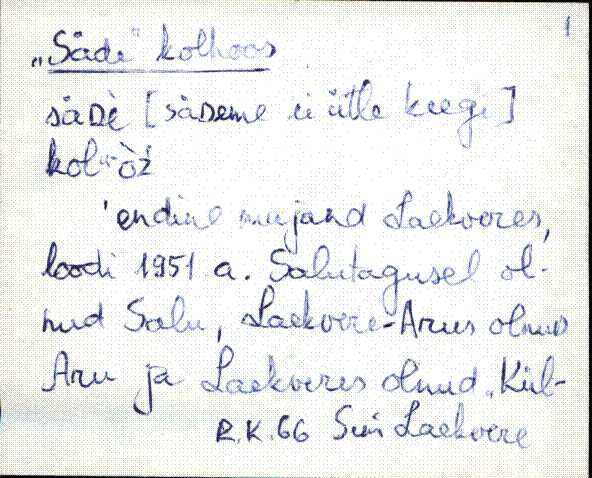 1
„Säde" kolhoos
säDè [säDeme ei ütle keegi]
'endine majand Laekveres,
loodi 1951 a. Salutagusel ol-
nud Salu, Laekvere-Arus olnud
Aru ja Laekveres olnud „Kül-
R.K. 66 Sim Laekvere